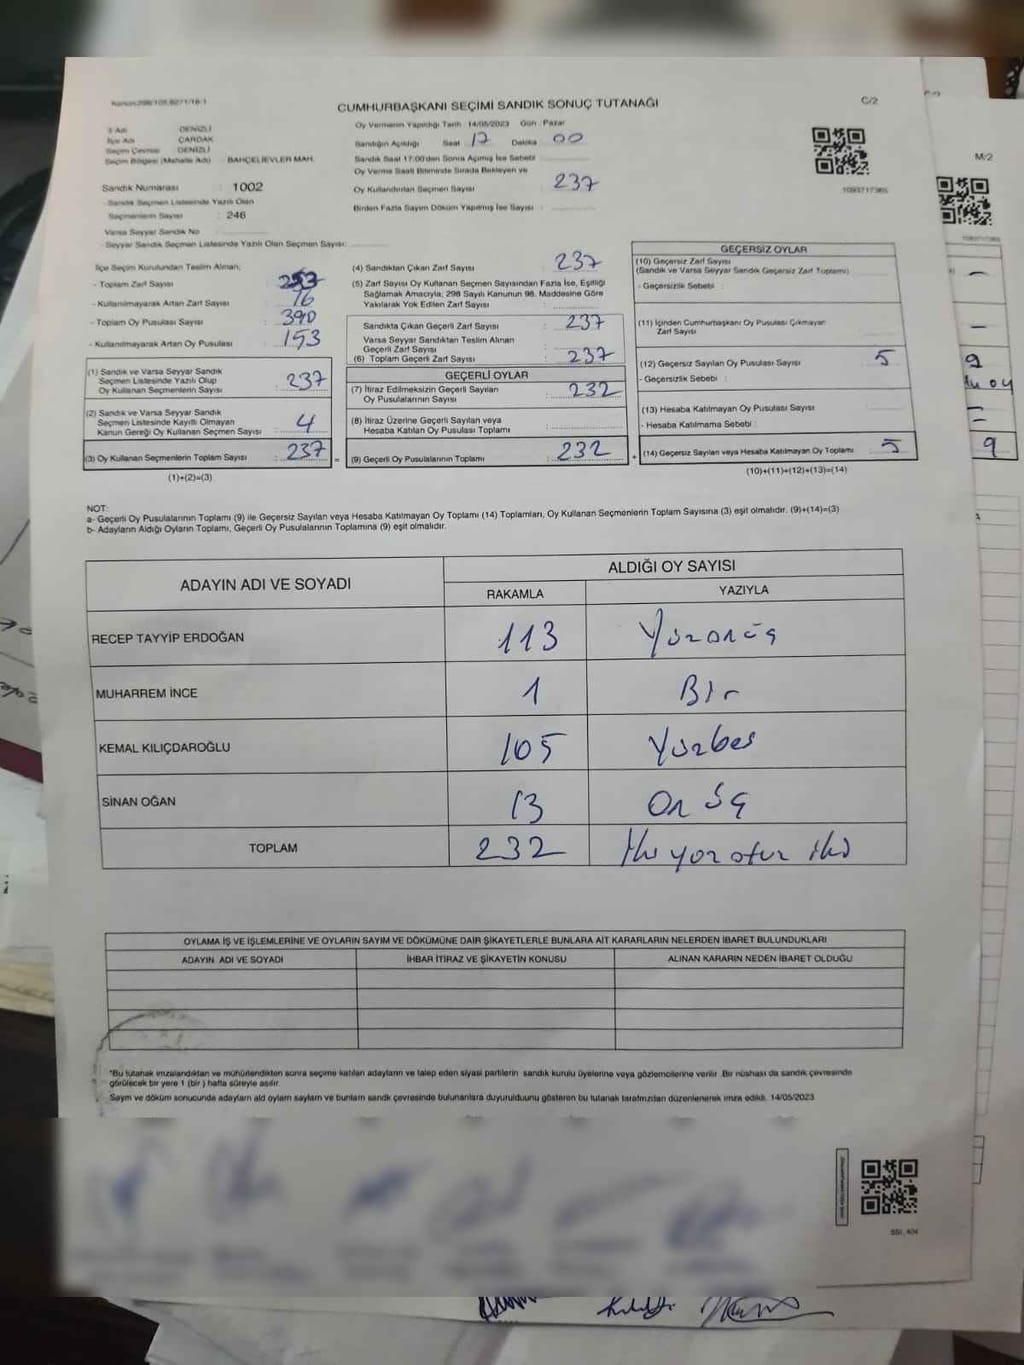 CUMHURBAŞKANI SEÇİMİ SANDIK SONUÇ TUTANAĞI
C/2
Oy Vermenin Yapıldığı Tarih : 14/05/2023 Gün : Pazar
İl Adı : DENİZLİ
İlçe Adı : ÇARDAK
Seçim Çevresi : DENİZLİ
Seçim Bölgesi (Mahalle Adı) : BAHÇELİEVLER MAH.
Sandık Numarası : 1002
- Sandık Seçmen Listesinde Yazılı Olan
Seçmenlerin Sayısı : 246
Varsa Seyyar Sandık No
- Seyyar Sandık Seçmen Listesinde Yazılı Olan Seçmen Sayısı:
Sandığın Açıldığı Saat : 17 Dakika : 00
Sandık Saat 17:00'den Sonra Açılmış İse Sebebi
Oy Verme Saati Bitiminde Sırada Bekleyen ve
Oy Kullandırılan Seçmen Sayısı : 237
Birden Fazla Sayım Döküm Yapılmış İse Sayısı :
İlçe Seçim Kurulundan Teslim Alınan;
- Toplam Zarf Sayısı :
- Kullanılmayarak Artan Zarf Sayısı : 16
- Toplam Oy Pusulası Sayısı : 390
- Kullanılmayarak Artan Oy Pusulası : 153
(1) Sandık ve Varsa Seyyar Sandık
Seçmen Listesinde Yazılı Olup
Oy Kullanan Seçmenlerin Sayısı : 237
(2) Sandık ve Varsa Seyyar Sandık
Seçmen Listesinde Kayıtlı Olmayan
Kanun Gereği Oy Kullanan Seçmen Sayısı : 4
(3) Oy Kullanan Seçmenlerin Toplam Sayısı : 237
(1)+(2)=(3)
(4) Sandıktan Çıkan Zarf Sayısı : 237
(5) Zarf Sayısı Oy Kullanan Seçmen Sayısından Fazla İse, Eşitliği
Sağlamak Amacıyla, 298 Sayılı Kanunun 98. Maddesine Göre
Yakılarak Yok Edilen Zarf Sayısı :
Sandıkta Çıkan Geçerli Zarf Sayısı : 237
Varsa Seyyar Sandıktan Teslim Alınan
Geçerli Zarf Sayısı :
(6) Toplam Geçerli Zarf Sayısı : 237
GEÇERLİ OYLAR
(7) İtiraz Edilmeksizin Geçerli Sayılan
Oy Pusulalarının Sayısı : 232
(8) İtiraz Üzerine Geçerli Sayılan veya
Hesaba Katılan Oy Pusulası Toplamı :
(9) Geçerli Oy Pusulalarının Toplamı : 232
GEÇERSİZ OYLAR
(10) Geçersiz Zarf Sayısı
(Sandık ve Varsa Seyyar Sandık Geçersiz Zarf Toplamı)
- Geçersizlik Sebebi :
(11) İçinden Cumhurbaşkanı Oy Pusulası Çıkmayan
Zarf Sayısı
(12) Geçersiz Sayılan Oy Pusulası Sayısı : 5
- Geçersizlik Sebebi :
(13) Hesaba Katılmayan Oy Pusulası Sayısı
- Hesaba Katılmama Sebebi :
(14) Geçersiz Sayılan veya Hesaba Katılmayan Oy Toplamı : 5
(10)+(11)+(12)+(13)=(14)
NOT:
a- Geçerli Oy Pusulalarının Toplamı (9) ile Geçersiz Sayılan veya Hesaba Katılmayan Oy Toplamı (14) Toplamları, Oy Kullanan Seçmenlerin Toplam Sayısına (3) eşit olmalıdır. (9)+(14)=(3)
b- Adayların Aldığı Oyların Toplamı, Geçerli Oy Pusulalarının Toplamına (9) eşit olmalıdır.
ADAYIN ADI VE SOYADI
ALDIĞI OY SAYISI
RAKAMLA YAZIYLA
RECEP TAYYİP ERDOĞAN 113 Yüzonüç
MUHARREM İNCE 1 Bir
KEMAL KILIÇDAROĞLU 105 Yüzbeş
SİNAN OĞAN 13 On üç
TOPLAM 232 İki yüz otuz iki
OYLAMA İŞ VE İŞLEMLERİNE VE OYLARIN SAYIM VE DÖKÜMÜNE DAİR ŞİKAYETLERLE BUNLARA AİT KARARLARIN NELERDEN İBARET BULUNDUKLARI
ADAYIN ADI VE SOYADI İHBAR İTİRAZ VE ŞİKAYETİN KONUSU ALINAN KARARIN NEDEN İBARET OLDUĞU
*Bu tutanak imzalandıktan ve mühürlendikten sonra seçime katılan adayların ve talep eden siyasi partilerin sandık kurulu üyelerine veya gözlemcilerine verilir. Bir nüshası da sandık çevresinde
görülecek bir yere 1 (bir) hafta süreyle asılır.
Sayım ve döküm sonucunda adayların ald oyların sayıları ve bunların sandık çevresinde bulunanlara duyurulduunu gösteren bu tutanak tarafımızdan düzenlenerek imza edildi. 14/05/2023
M/2
9
9